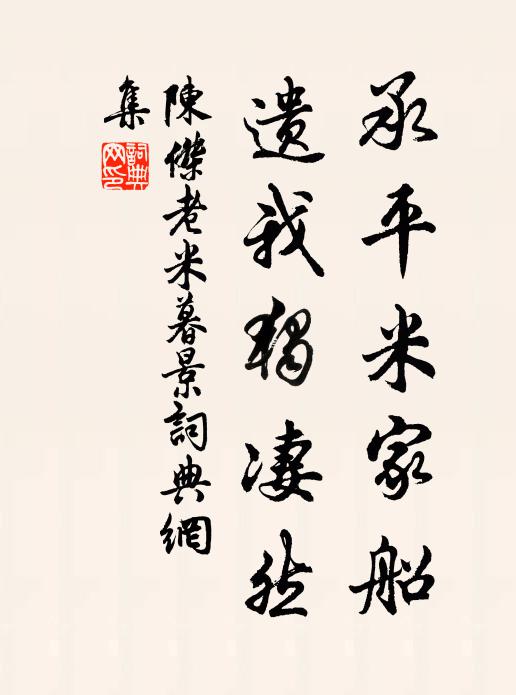 承平米家船
遗我獨淒然
陳傑老米暮景詞典網
集
詞典
网印